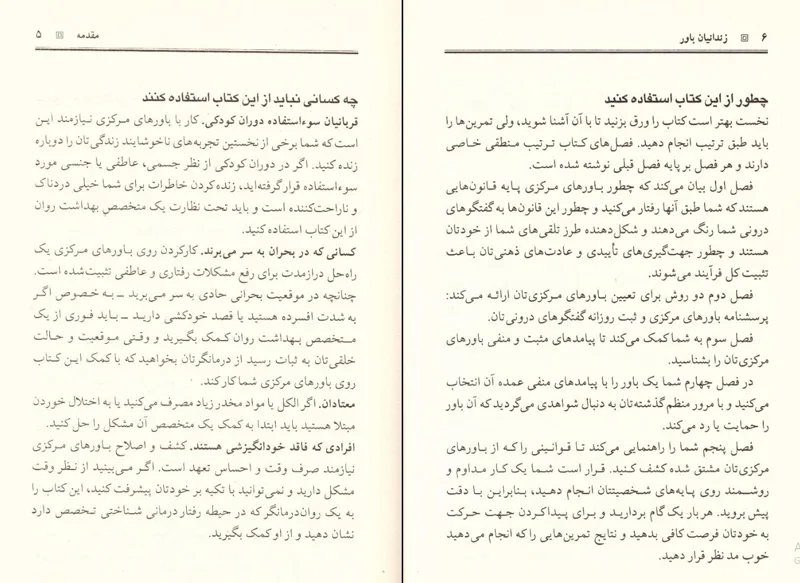 مقدمه ▣ ۵
چه کسانی نباید از این کتاب استفاده کنند
قربانیان سوءاستفاده دوران کودکی. کار با باورهای مرکزی نیازمند این
است که شما برخی از نخستین تجربه‌های ناخوشایند زندگی‌تان را دوباره
زنده کنید. اگر در دوران کودکی از نظر جسمی، عاطفی یا جنسی مورد
سوءاستفاده قرار گرفته‌اید، زنده کردن خاطرات برای شما خیلی دردناک
و ناراحت‌کننده است و باید تحت نظارت یک متخصص بهداشت روان
از این کتاب استفاده کنید.
کسانی که در بحران به سر می‌برند. کارکردن روی باورهای مرکزی یک
راه‌حل درازمدت برای رفع مشکلات رفتاری و عاطفی تثبیت‌شده است.
چنانچه در موقعیت بحرانی حادی به سر می‌برید ــ به خصوص اگر
به شدت افسرده هستید یا قصد خودکشی دارید ــ باید فوری از یک
متخصص بهداشت روان کمک بگیرید و وقتی موقعیت و حالت
خلقی‌تان به ثبات رسید از درمانگرتان بخواهید که با کمک این کتاب
روی باورهای مرکزی شما کار کند.
معتادان. اگر الکل یا مواد مخدر زیاد مصرف می‌کنید یا به اختلال خوردن
مبتلا هستید باید ابتدا به کمک یک متخصص آن مشکل را حل کنید.
افرادی که فاقد خودانگیزشی هستند. کشف و اصلاح باورهای مرکزی
نیازمند صرف وقت و احساس تعهد است. اگر می‌بینید از نظر وقت
مشکل دارید و نمی‌توانید با تکیه بر خودتان پیشرفت کنید، این کتاب را
به یک روان‌درمانگر که در حیطه رفتار درمانی شناختی تخصص دارد
نشان دهید و از او کمک بگیرید.
۶ ▣ زندانیان باور
چطور از این کتاب استفاده کنید
نخست بهتر است کتاب را ورق بزنید تا با آن آشنا شوید، ولی تمرین‌ها را
باید طبق ترتیب انجام دهید. فصل‌های کتاب ترتیب منطقی خاصی
دارند و هر فصل بر پایه فصل قبلی نوشته شده است.
فصل اول بیان می‌کند که چطور باورهای مرکزی پایه قانون‌هایی
هستند که شما طبق آنها رفتار می‌کنید و چطور این قانون‌ها به گفتگوهای
درونی شما رنگ می‌دهند و شکل‌دهنده طرز تلقی‌های شما از خودتان
هستند و چطور جهت‌گیری‌های تأییدی و عادت‌های ذهنی‌تان باعث
تثبیت کل فرآیند می‌شوند.
فصل دوم دو روش برای تعیین باورهای مرکزی‌تان ارائه می‌کند:
پرسشنامه باورهای مرکزی و ثبت روزانه گفتگوهای درونی‌تان.
فصل سوم به شما کمک می‌کند تا پیامدهای مثبت و منفی باورهای
مرکزی‌تان را بشناسید.
در فصل چهارم شما یک باور را با پیامدهای منفی عمده آن انتخاب
می‌کنید و با مرور منظم گذشته‌تان به دنبال شواهدی می‌گردید که آن باور
را حمایت یا رد می‌کند.
فصل پنجم شما را راهنمایی می‌کند تا قوانینی را که از باورهای
مرکزی‌تان مشتق شده کشف کنید. قرار است شما یک کار مداوم و
روشمند روی پایه‌های شخصیتتان انجام دهید، بنابراین با دقت
پیش بروید. هر بار یک گام بردارید و برای پیدا کردن جهت حرکت
به خودتان فرصت کافی بدهید و نتایج تمرین‌هایی را که انجام می‌دهید
خوب مد نظر قرار دهید.